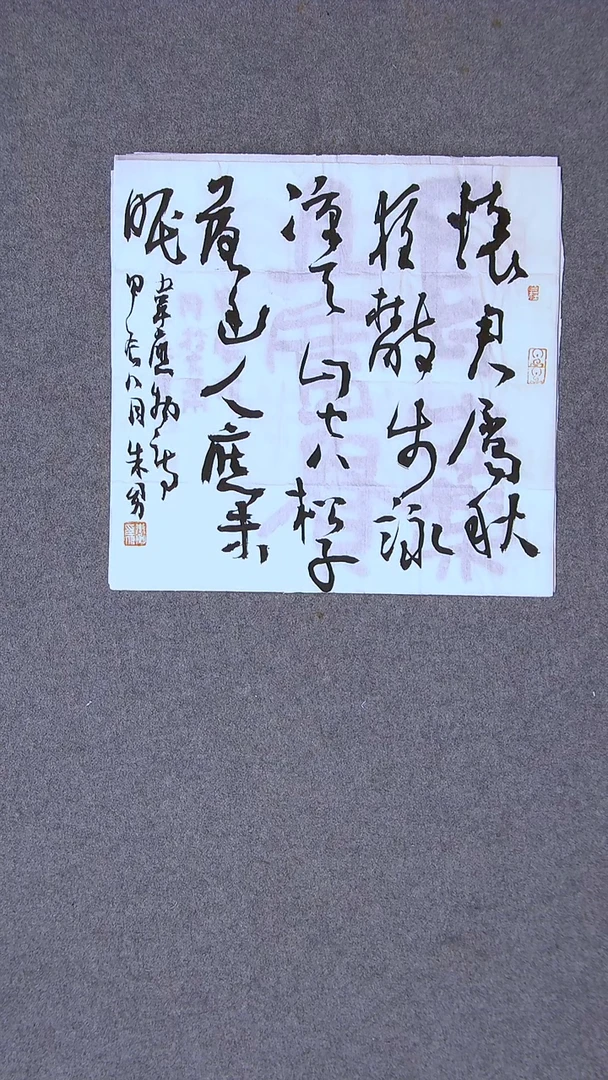 懷君屬秋
夜散步詠
涼天山空松子
落幽人應未
眠
韋應物詩
甲辰八月朱